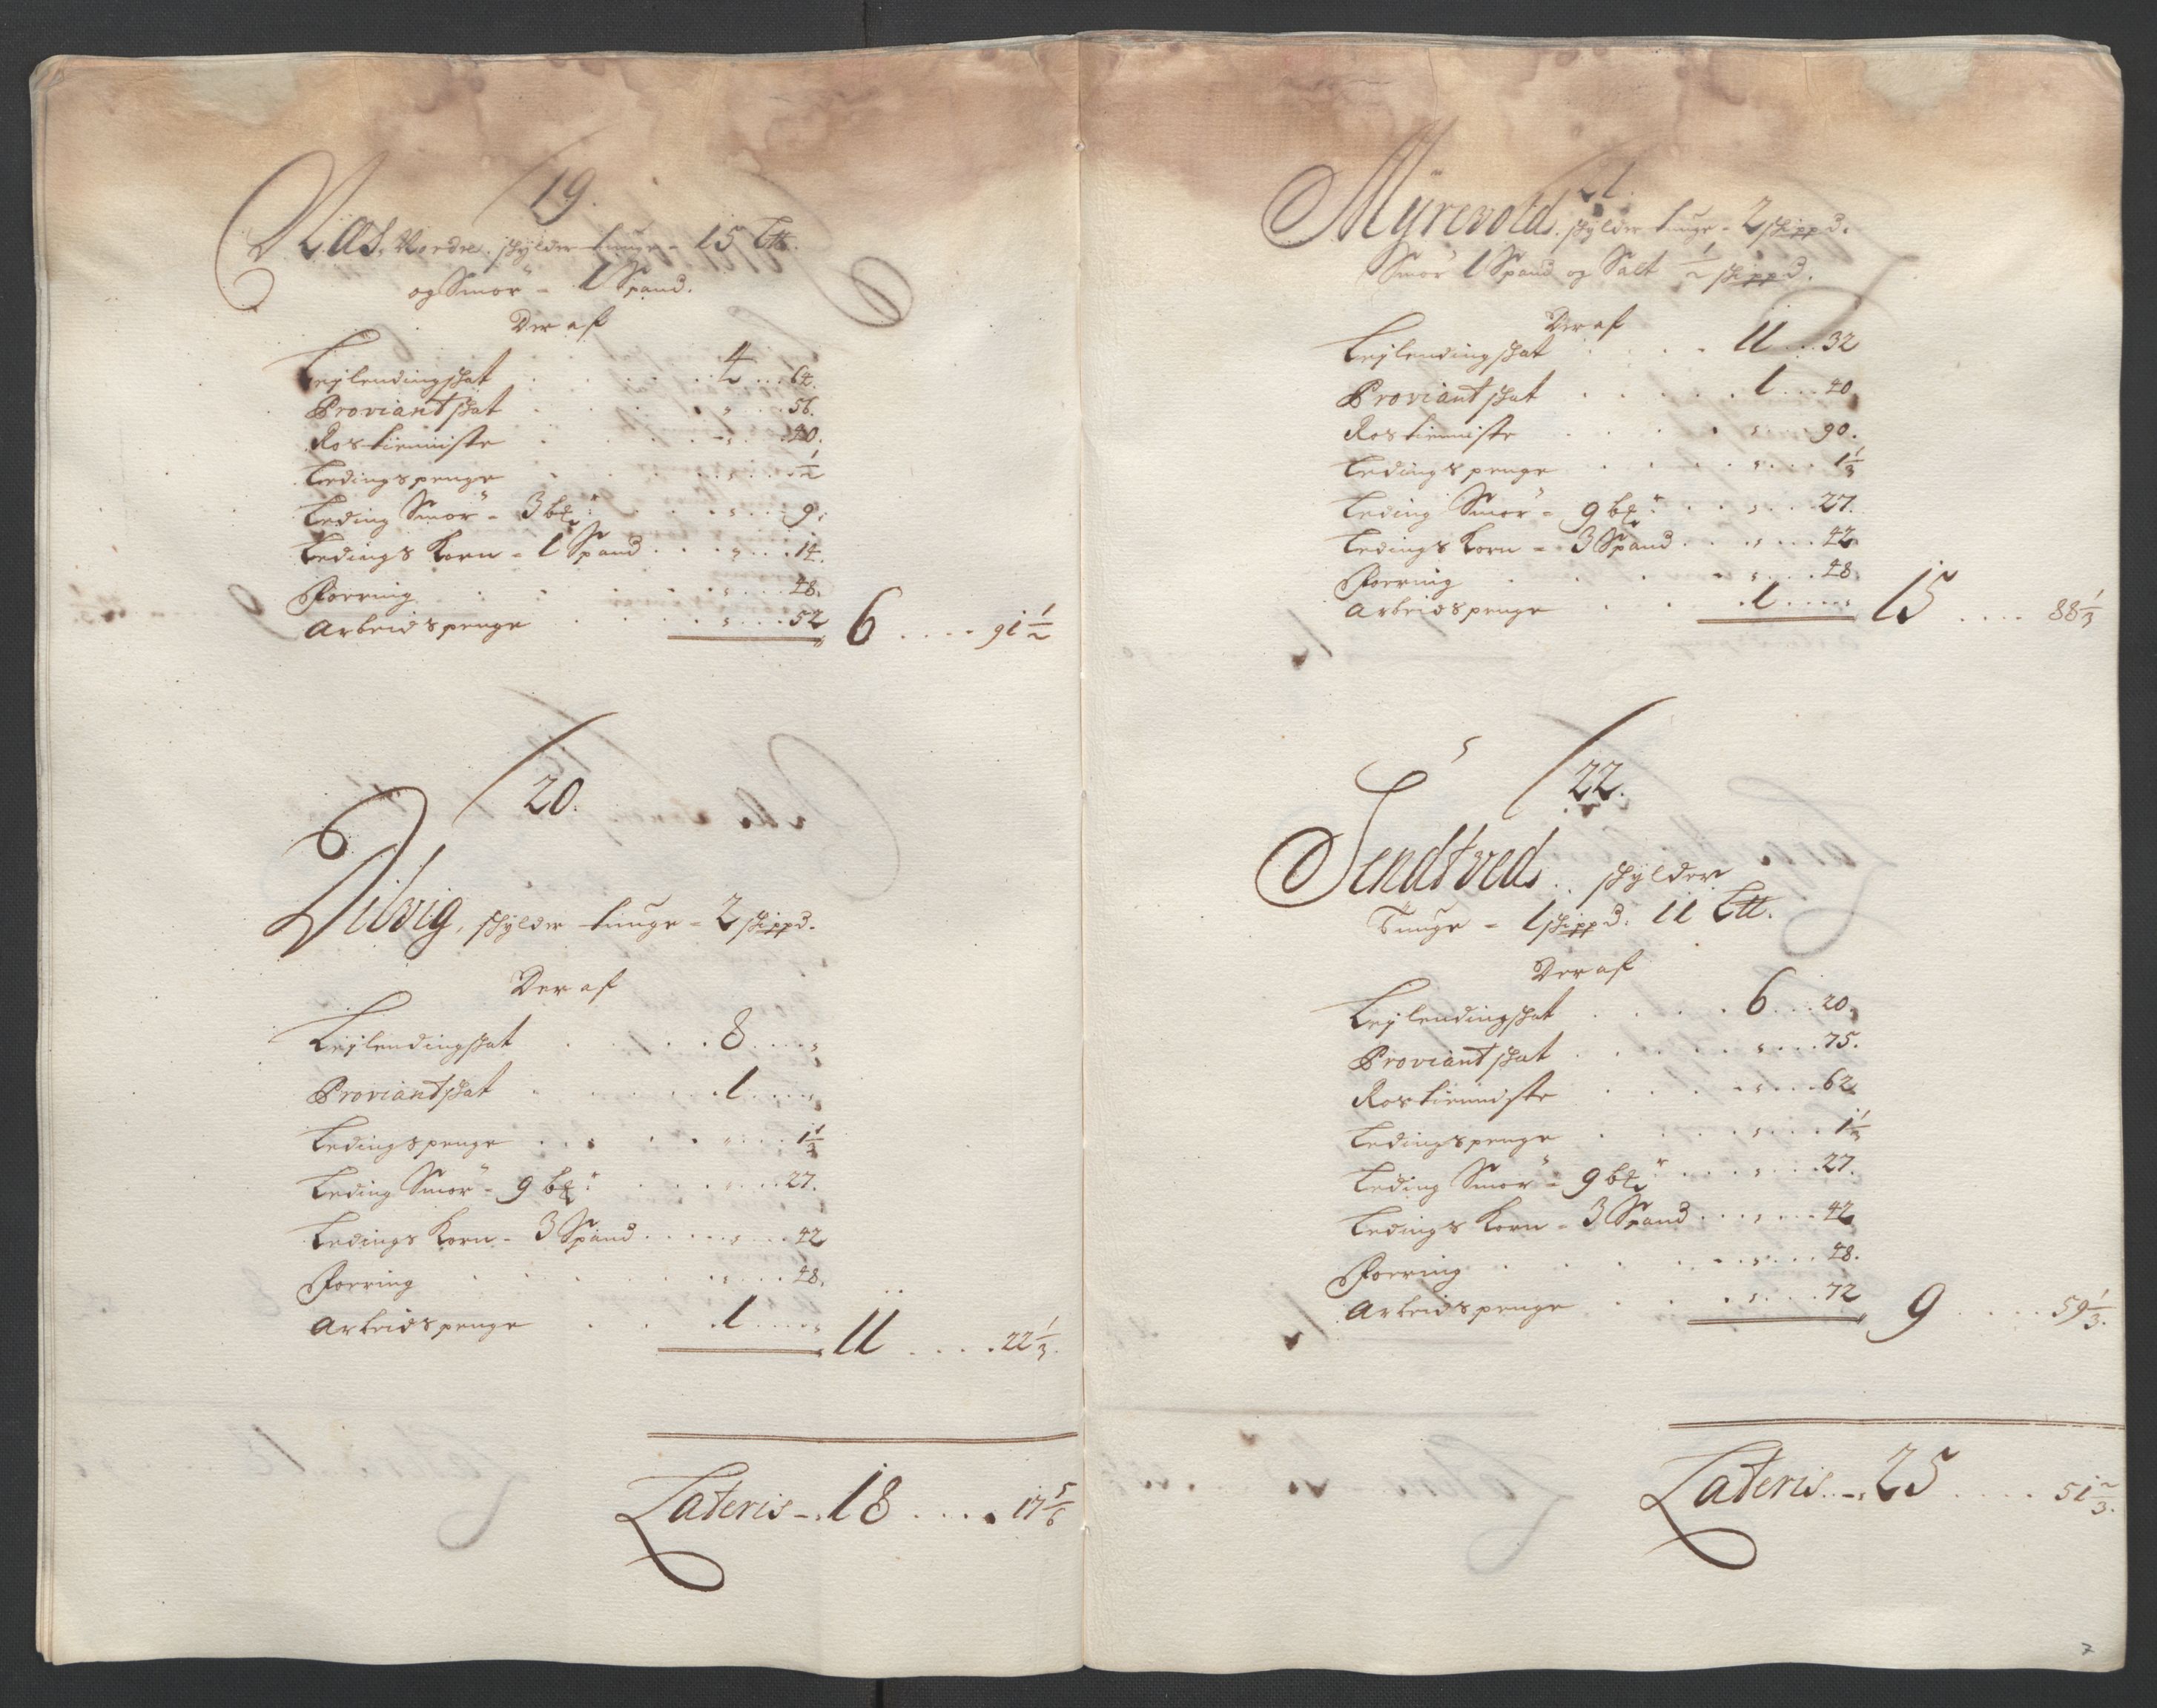 19.
Næs, Nordre. skylder tunge - 15 L℔.
og Smör - 1 Spand.
Der af
Leylendingskat . . . . 4 . . . 64.
Proviantskat . . . . „ . . . 56.
Rostienniste . . . . „ . . . 40.
Ledingspenge . . . . „ . . . ½
Leding Smör - 3 b℔r: . . . . „ . . . 9.
Ledings Korn - 1 Spand . . . . „ . . . 14.
Foering . . . . „ . . . 48.
Arbeidspenge . . . . „ . . . 52 „ 6 . . . . 91½
20.
Dilvig, skylder tunge - 2 skippd.
Der af
Leylendingskat . . . . 8 . . . . „
Proviantskat . . . . 1 . . . . „
Ledingspenge . . . . „ . . . 1⅓
Leding Smör - 9 b℔r: . . . . „ . . . 27.
Ledings Korn - 3 Spand . . . . „ . . . 42
Foering . . . . „ . . . 48.
Arbeidspenge . . . . 1 . . . . „ 11 . . . . 22⅓.
Lateris -. 18 . . . . 17 5/6
21.
Myrevold. skylder tunge - 2 skippd.
Smör 1 Spand og Salt ½ skippd.
Der af
Leylendingskat . . . . 11 . . . 32
Proviantskat . . . . 1 . . . 40.
Rostienniste . . . . „ . . . 90.
Ledingspenge . . . . „ . . . 1⅓
Leding Smör - 9 b℔r: . . . . „ . . . 27.
Ledings Korn - 3 Spand . . . . „ . . . 42
Foering . . . . „ . . . 48.
Arbeidspenge . . . . 1 . . . . „ 15 . . . . 88⅓
22.
Sendtved. skylder
Tunge - 1 skippd. 11 L℔.
Der af
Leylendingskat . . . . 6 . . . 20.
Proviantskat . . . . „ . . . 75.
Rostienniste . . . . „ . . . 62
Ledingspenge . . . . „ . . . 1⅓
Leding Smör - 9 b℔r . . . . „ . . . 27.
Ledings Korn - 3 Spand . . . . „ . . . 42
Foering . . . . „ . . . 48.
Arbeidspenge . . . . „ . . . 72 „ 9 . . . . 59⅓.
Lateris -. 25 . . . . 51⅔.
7